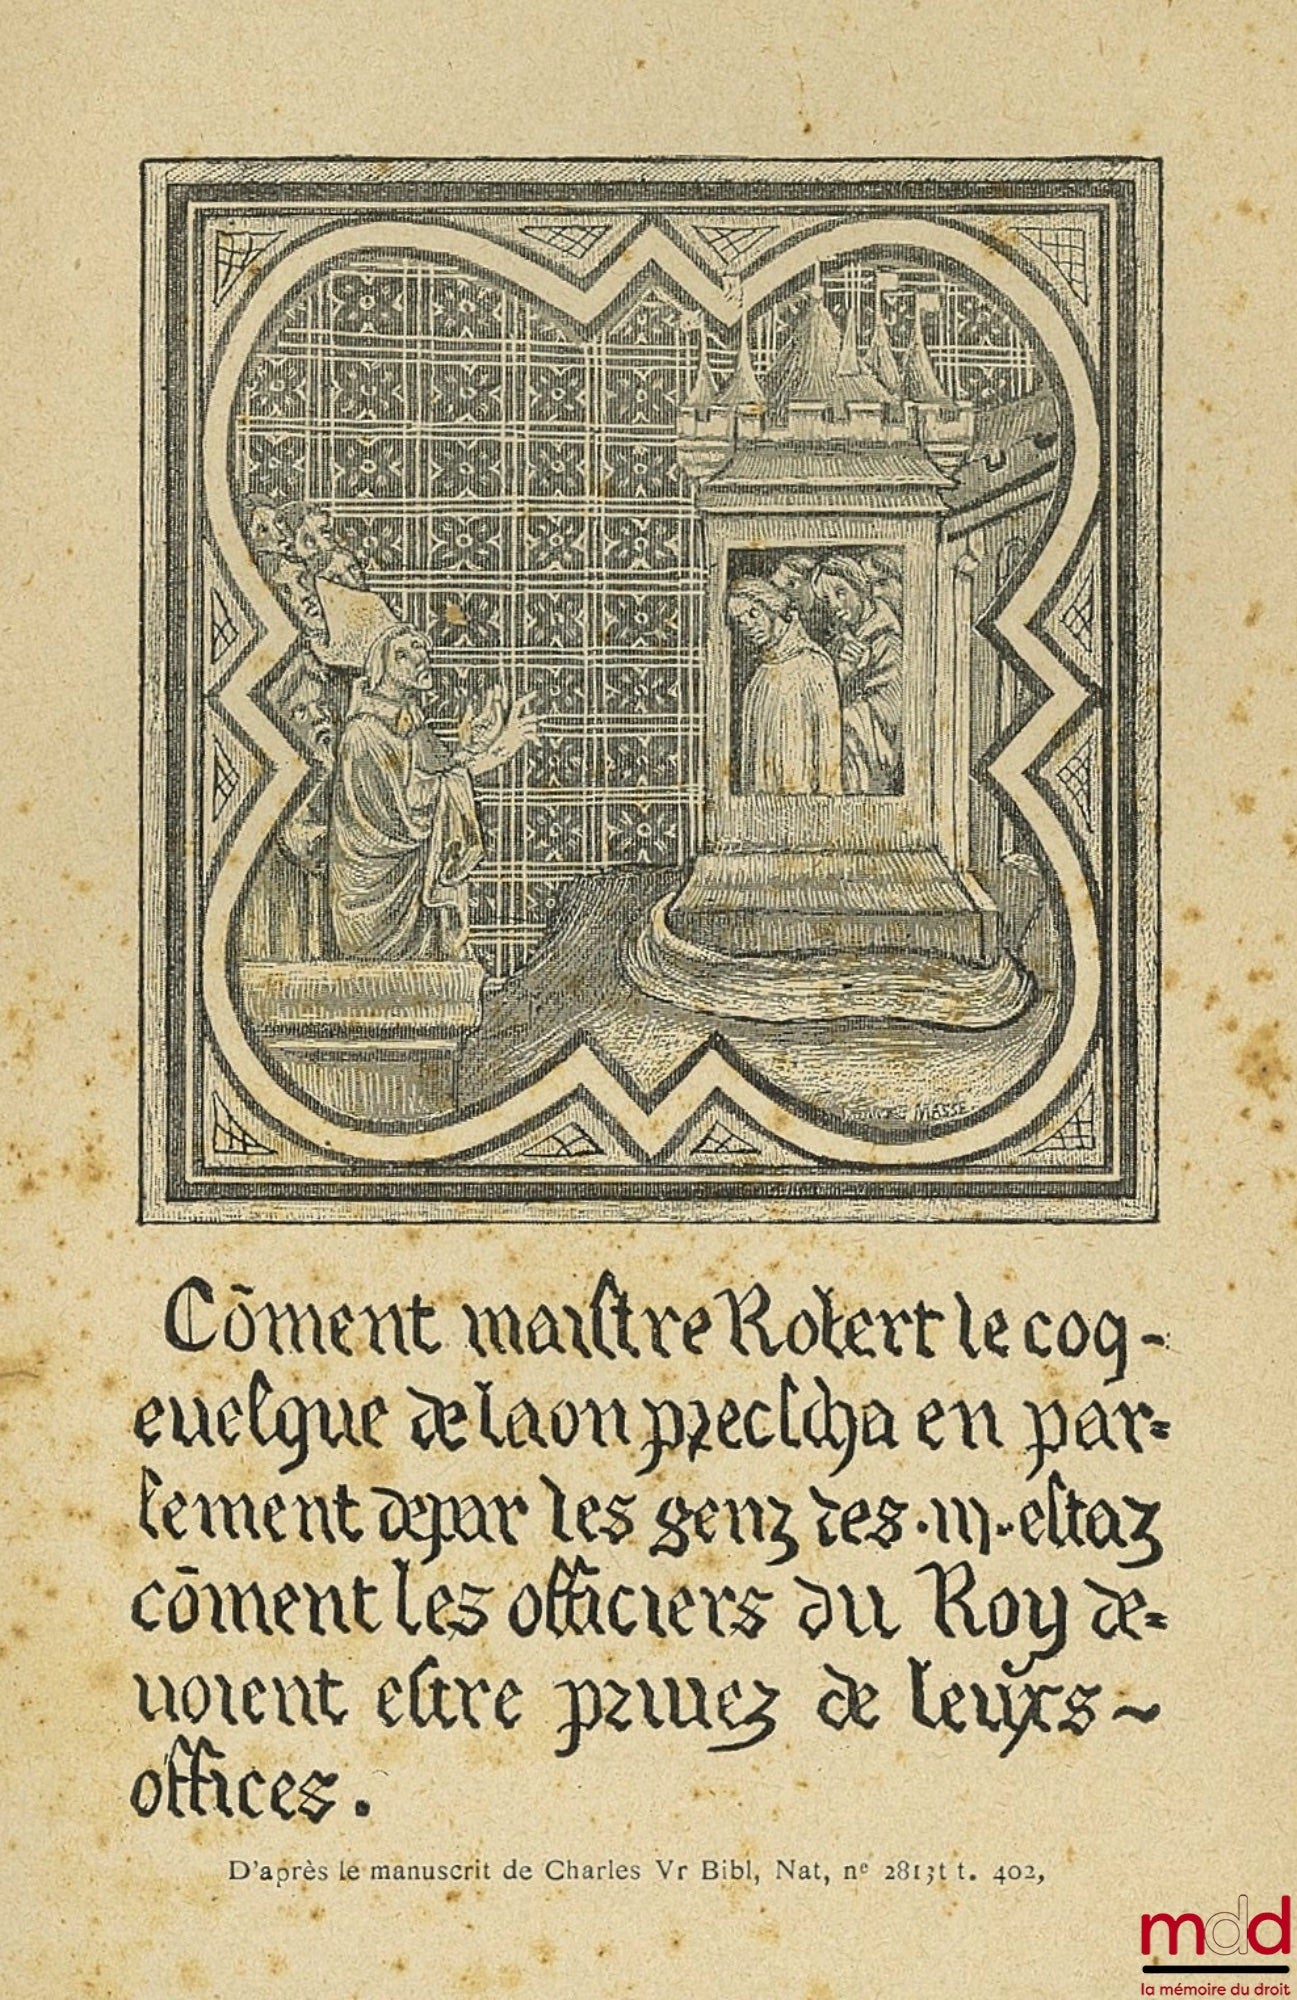 MASSE
Cōment maistre Robert le coq-
euesque de laon preescha en par=
lement depar les genz des .III. estaz
cōment les officiers du Roy de=
uoient estre priuez de leurs~
offices.
D'après le manuscrit de Charles Vr Bibl, Nat, nᵉ 2813t t. 402,
mdd
la mémoire du droit